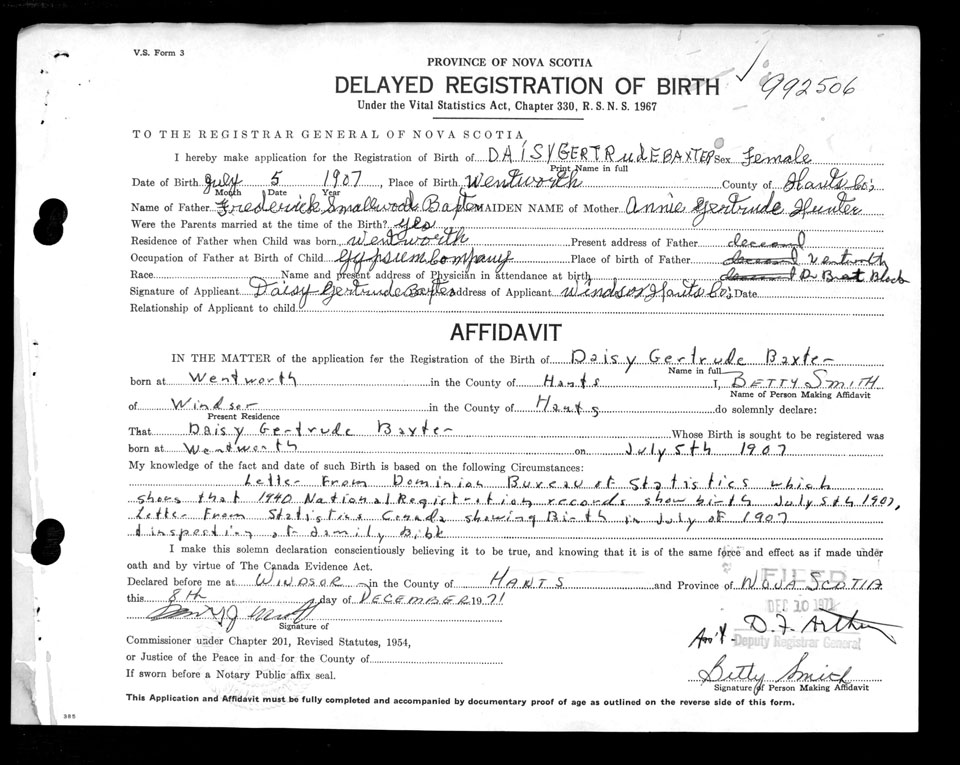 V.S. Form 3
PROVINCE OF NOVA SCOTIA
DELAYED REGISTRATION OF BIRTH
992506
Under the Vital Statistics Act, Chapter 330, R.S.N.S. 1967
TO THE REGISTRAR GENERAL OF NOVA SCOTIA
I hereby make application for the Registration of Birth of DAISY GERTRUDE BAXTER Sex Female
Print Name in full
Date of Birth July 5 1907, Place of Birth Wentworth County of Hants Co;
Month Date Year
Name of Father Frederick Smallwood Baxter MAIDEN NAME of Mother Annie Gertrude Hunter
Were the Parents married at the time of the Birth? yes
Residence of Father when Child was born Wentworth Present address of Father deceased
Occupation of Father at Birth of Child Gypsium Company Place of birth of Father deceased
Race Name and present address of Physician in attendance at birth deceased Dr Black
Signature of Applicant Daisy Gertrude Baxter Address of Applicant Windsor Hants Co; Date
Relationship of Applicant to child
AFFIDAVIT
IN THE MATTER of the application for the Registration of the Birth of Daisy Gertrude Baxter
Name in full
born at Wentworth in the County of Hants I, BETTY SMITH
Name of Person Making Affidavit
of Windsor in the County of Hants do solemnly declare:
Present Residence
That Daisy Gertrude Baxter Whose Birth is sought to be registered was
born at Wentworth on July 5th 1907
My knowledge of the fact and date of such Birth is based on the following Circumstances:
Letter From Dominion Bureau of Statistics which
shows that 1940 National Registration records show birth July 5th 1907,
Letter From Statistics Canada showing Birth in July of 1907
& inspecting of family Bible
I make this solemn declaration conscientiously believing it to be true, and knowing that it is of the same force and effect as if made under
oath and by virtue of The Canada Evidence Act.
Declared before me at WINDSOR in the County of HANTS and Province of NOVA SCOTIA
FILED
this 8TH day of DECEMBER 1971
DEC 10 1971
Signature of
D. F. Arthur
Commissioner under Chapter 201, Revised Statutes, 1954,
Deputy Registrar General
or Justice of the Peace in and for the County of
Betty Smith
If sworn before a Notary Public affix seal.
Signature of Person Making Affidavit
This Application and Affidavit must be fully completed and accompanied by documentary proof of age as outlined on the reverse side of this form.
385